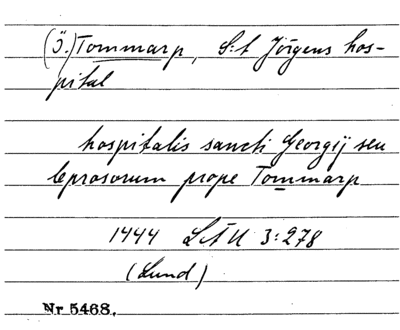 (Ö.) Tommarp, S:t Jörgens hos-
pital
hospitalis sancti Georgij seu
leprosorum prope Tommarp
1444 LÄU 3:278
(Lund)
Nr 5468.